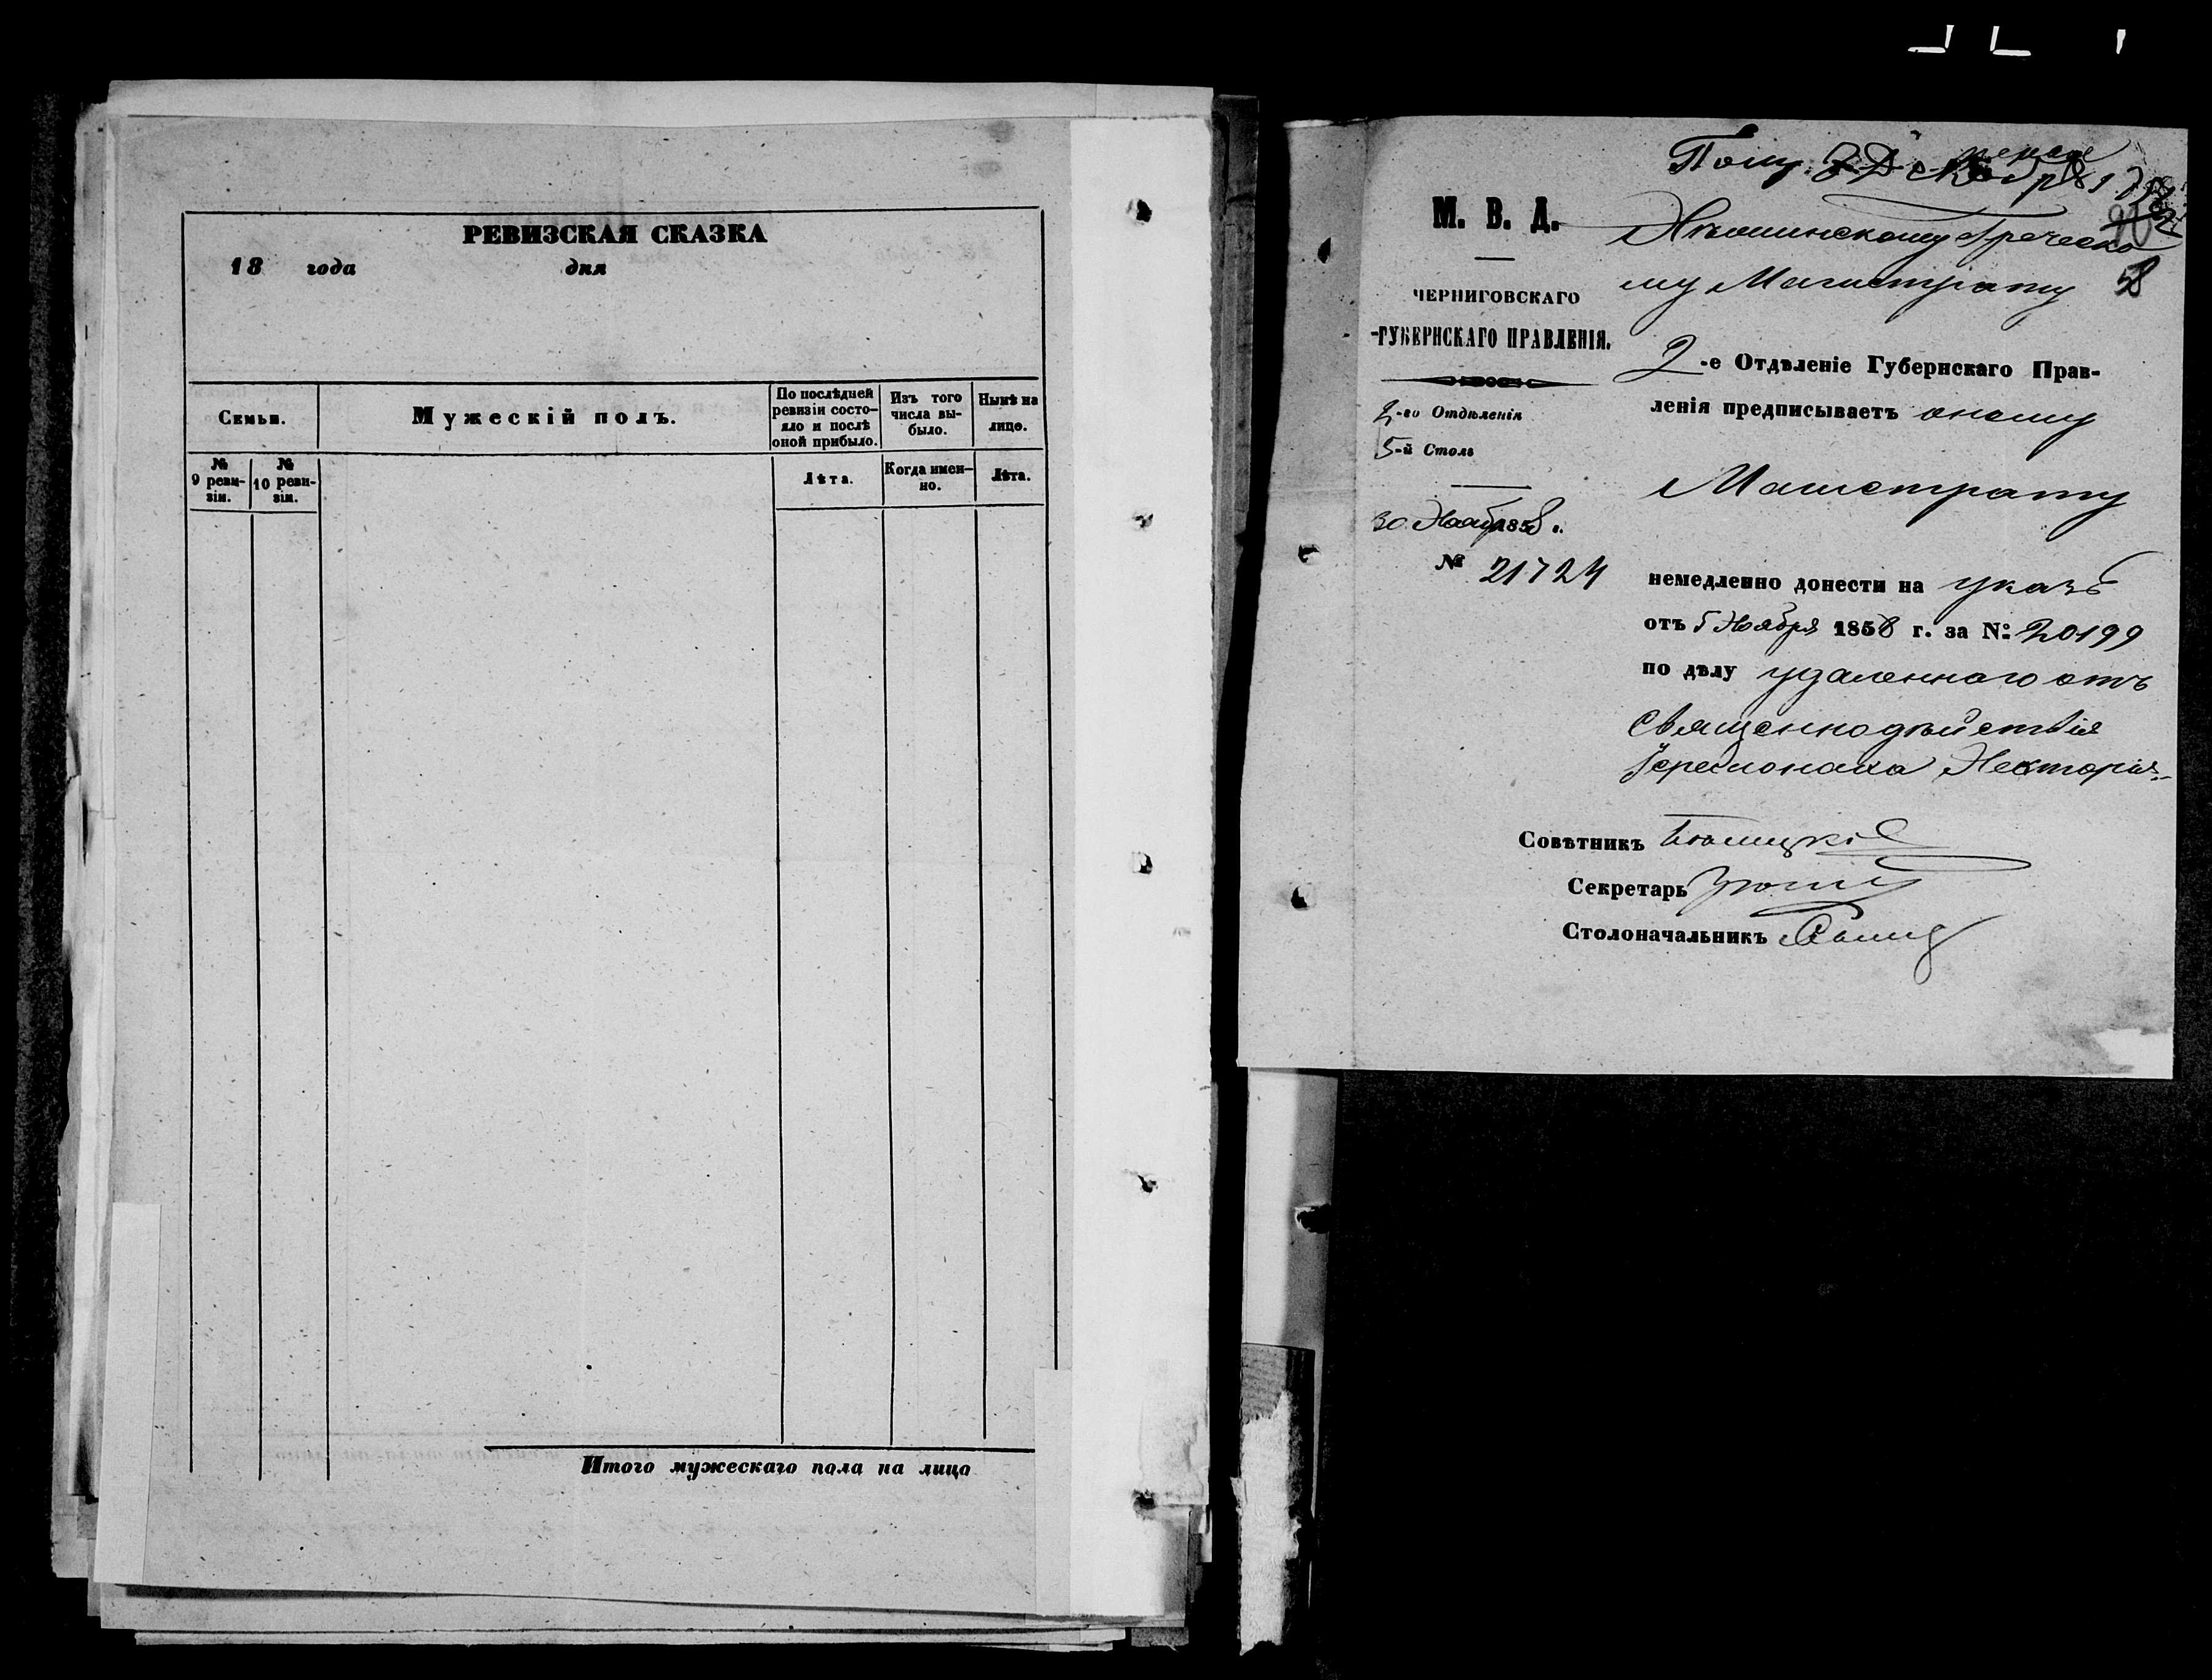 РЕВИЗСКАЯ СКАЗКА
18 года дня
Семьи.
Мужескій полъ.
По послѣдней ревизіи состо-
яло и послѣ
оной прибыло.
Изъ того
числа вы-
было.
Нынѣ на
лицо.
№
9 реви-
зіи.
№
10 реви-
зіи.
Лѣта.
Когда имен-
но.
Лѣта.
Итого мужескаго пола на лицо
Полу.
М. В. Д.
ЧЕРНИГОВСКАГО
ГУБЕРНСКАГО ПРАВЛЕНІЯ.
2-го Отдѣленія
5-й Столъ
30 Нояб 1858 г.
№ 21724
Нѣжинскому Греческо
му Магистрату
2-е Отдѣленіе Губернскаго Прав-
ленія предписываетъ оному
Магистрату
немедленно донести на указъ
отъ 5 Ноября 1858 г. за № 20199
по дѣлу удаленнаго отъ
Священнодѣйствія
Іеремонаха Нектарія
Совѣтникъ
Секретарь
Столоначальникъ